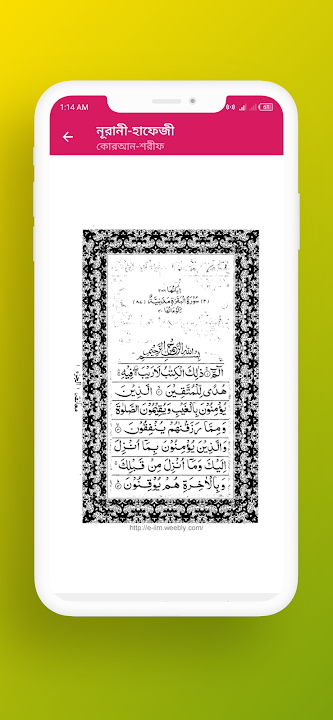 1:14 AM
নূরানী-হাফেজী
কোরআন-শরীফ
(٢) سُوْرَةُ الْبَقَرَةِ مَدَنِيَّةٌ (٨٧)
بِسْمِ اللّٰهِ الرَّحْمٰنِ الرَّحِيْمِ
الٓمّٓ ۚ ذٰلِكَ الْكِتٰبُ لَا رَيْبَ ۛ فِيْهِ ۛ
هُدًى لِّلْمُتَّقِيْنَ ۙ الَّذِيْنَ
يُؤْمِنُوْنَ بِالْغَيْبِ وَيُقِيْمُوْنَ الصَّلٰوةَ
وَمِمَّا رَزَقْنٰهُمْ يُنْفِقُوْنَ ۙ
وَالَّذِيْنَ يُؤْمِنُوْنَ بِمَآ اُنْزِلَ
اِلَيْكَ وَمَآ اُنْزِلَ مِنْ قَبْلِكَ ۚ
وَبِالْاٰخِرَةِ هُمْ يُوْقِنُوْنَ ۗ
http://e-ilm.weebly.com/